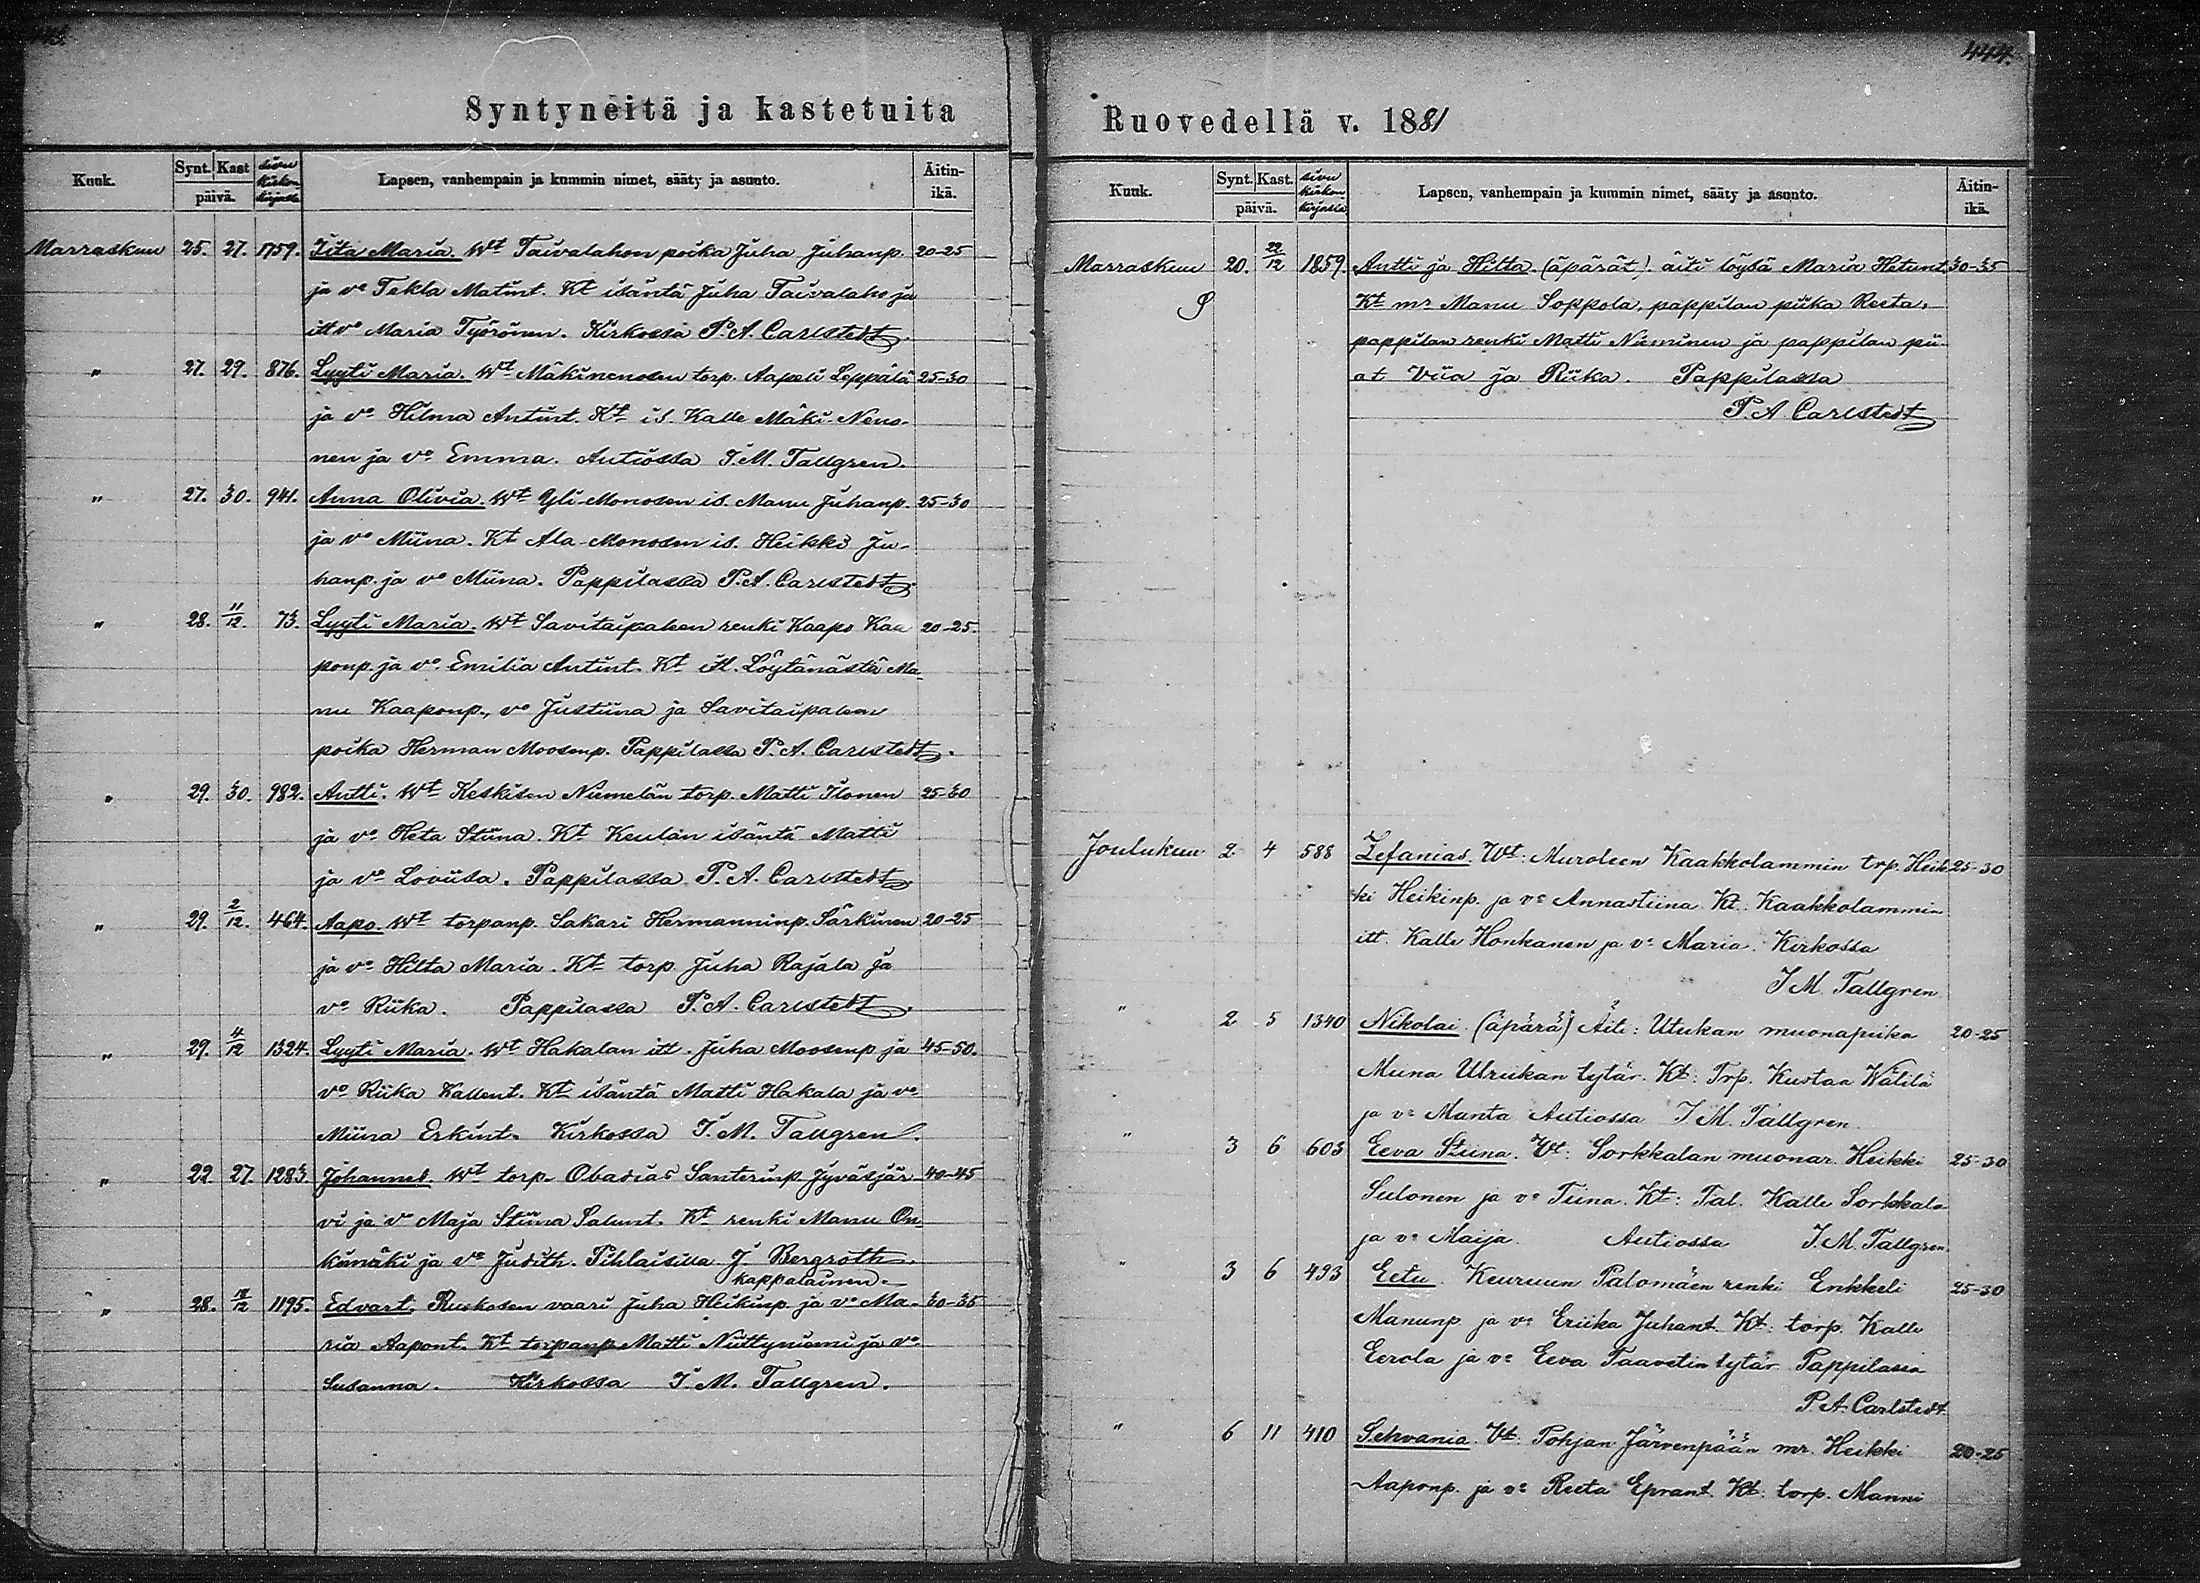 444.
Syntyneitä ja kastetuita
Kuuk. Synt. Kast päivä. sivu kirkon kirjassa Lapsen, vanhempain ja kummin nimet, sääty ja asunto. Äitin-ikä.
Marraskuu 25. 27. 1759. Iita Maria. Wt Taivalahon poika Juha Juhanp. 20-25
ja vo Tekla Matint. Kt isäntä Juha Taivalaho ja
itt vo Maria Työrönen. Kirkossa P. A. Carlstedt.
" 27. 29. 876. Lyyti Maria. Wt Mäkinenosen torp. Aapeli Leppälä 25-30
ja vo Hilma Antint. Kt is. Kalle Mäki-Neno-
nen ja vo Emma. Autiossa J. M. Tallgren.
" 27. 30. 941. Anna Olivia. Wt Yli-Monosen is. Manu Juhanp. 25-30
ja vo Miina. Kt Ala-Monosen is. Heikki Ju-
hanp. ja vo Miina. Pappilassa P. A. Carlstedt.
" 28. 11/12. 73. Lyyti Maria. Wt Savitaipaleen renki Kaapo Kaa 20-25.
ponp. ja vo Emilia Antint. Kt itt. Löytänästä Ma-
nu Kaaponp., vo Justiina ja Savitaipaleen
poika Herman Moosenp. Pappilassa P. A. Carlstedt.
" 29. 30. 982. Antti. Wt Keskisen Niemelän torp. Matti Ilonen 25-30
ja vo Heta Stiina. Kt Keulan isäntä Matti
ja vo Loviisa. Pappilassa P. A. Carlstedt
" 29. 2/12. 464. Aapo. Wt torpanp. Sakari Hermanninp. Särkinen 20-25
ja vo Hilta Maria. Kt torp Juha Rajala ja
vo Riika. Pappilassa P. A. Carlstedt.
" 29. 4/12 1324. Lyyti Maria. Wt Hakalan itt. Juha Moosenp ja 45-50.
vo Riika Kallent. Kt isäntä Matti Hakala ja vo
Miina Erkint. Kirkossa J. M. Tallgren.
" 22. 27. 1283. Johannes. Wt torp. Obadias Santerinp. Jyväsjär- 40-45
vi ja vo Maja Stiina Salunt. Kt renki Manu On-
kimäki ja vo Judith. Pihlaisilla J. Bergroth
kappalainen.
" 28. 18/12 1195. Edvart. Ruskosen vaari Juha Heikinp. ja vo Ma- 30-35
ria Aapont. Kt torpanp Matti Niittyniemi ja vo
Susanna. Kirkossa J. M. Tallgren.
Ruovedellä v. 1881
Kuuk. Synt. Kast. päivä. sivu kirkon kirjassa Lapsen, vanhempain ja kummin nimet, sääty ja asunto. Äitin-ikä.
Marraskuu 20. 22/12 1859. Antti ja Hilta. (äpärät). äiti löysä Maria Hetunt. 30-35
Kt mr Manu Soppola, pappilan piika Reeta.
pappilan renki Matti Nieminen ja pappilan pii-
at Viia ja Riika. Pappilassa
P. A Carlstedt
Joulukuu 2 4 588 Zefanias. Wt: Muroleen Kaakkolammin trp. Heik- 25-30
ki Heikinp. ja vo Annastiina Kt: Kaakkolammin
itt. Kalle Honkanen ja vo Maria. Kirkossa
J M. Tallgren
" 2 5 1340 Nikolai. (äpärä) Äiti: Utukan muonapiika 20-25
Miina Ulriikan tytär. Kt: Trp. Kustaa Wälilä
ja vo Manta Autiossa J M. Tallgren
" 3 6 603 Eeva Stiina. Wt: Sorkkalan muonar. Heikki 25-30
Sulonen ja vo Tiina. Kt: Tal. Kalle Sorkkala
ja vo Maija. Autiossa J. M. Tallgren.
" 3 6 493 Eetu. Keuruun Palomäen renki Enkkeli 25-30
Manunp ja vo Eriika Juhant. Kt: torp. Kalle
Eerola ja vo Eeva Taavetin tytär Pappilassa
P. A. Carlstedt.
" 6 11 410 Selvania. Vt: Pohjan Järvenpään mr. Heikki 20-25
Aaponp. ja vo Reeta Eprant. Kt: torp. Manni